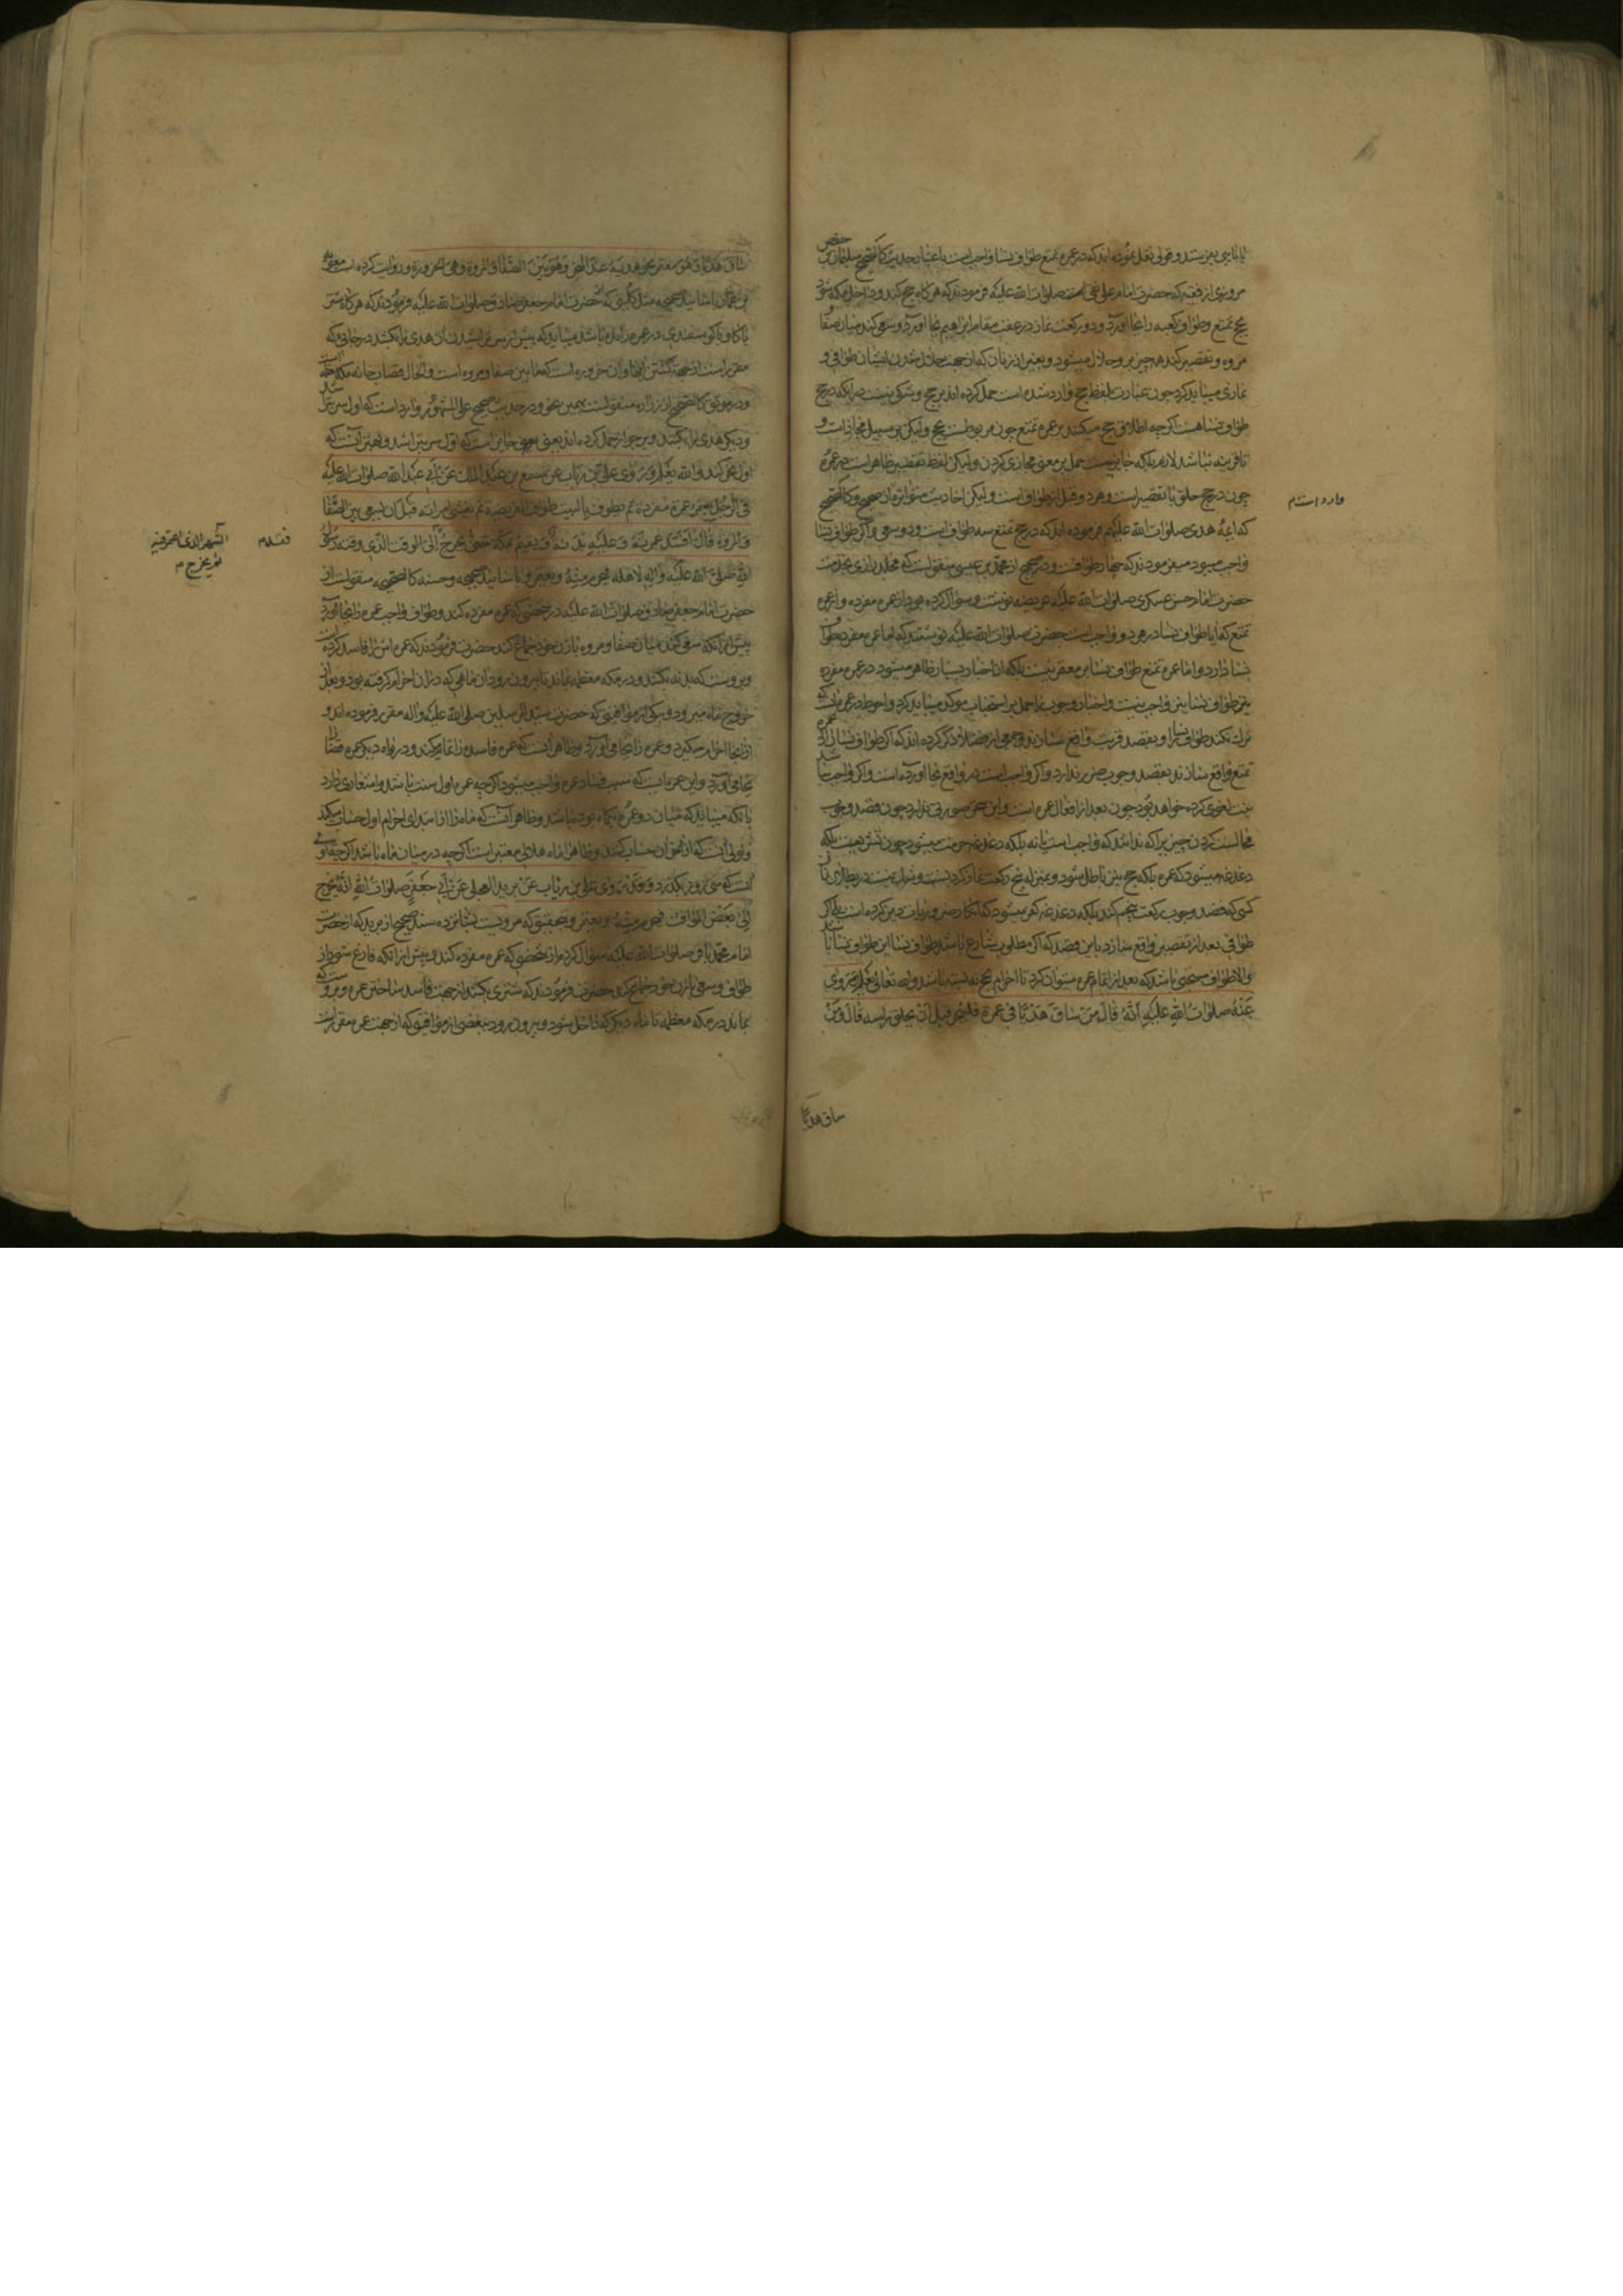 یا نایبی بفرستد و قولی نقل نموده‌اند که در عمره تمتع طواف نسا واجب است باعتبار حدیث کالصحیح سلیمان بن حفص
مروزی از فقیه که حضرت امام علی نقی صلوات الله علیه فرمودند که هرگاه حج کند و داخل مکه شود
بحج تمتع و طواف کعبه را بجا آورد و دو رکعت نماز در عقب مقام ابراهیم بجا آورد و سعی کند میان صفا و
مروه و تقصیر کند همه چیز برو حلال میشود و بغیر از زنان که از جهت حلال شدن ایشان طوافی و
نمازی میباید کرد چون عبارت بلفظ حج وارد شده است حمل کرده‌اند بر حج و شکی نیست در آنکه در حج
طواف نسا هست اگرچه اطلاق حج میکنند بر عمره تمتع چون مربوطست بحج ولیکن بر سبیل مجاز است و
تا قرینه نباشد لازم بلکه جایز نیست حمل بر معنی مجازی کردن ولیکن لفظ تقصیر ظاهر است در عمره
چون در حج حلق یا تقصیر است و هر دو قبل از طواف است ولیکن احادیث متواتره از صحیح و کالصحیح
وارد است م
که ائمه هدی صلوات الله علیهم فرموده‌اند که در حج تمتع سه طواف است و دو سعی و اگر طواف نسا
واجب میبود میفرمودند که چهار طوافست و در صحیح از محمد بن عیسی منقولست که مخلد رازی بخدمت
حضرت امام حسن عسکری صلوات الله علیه عریضه نوشت و سؤال کرده بود از عمره مفرده و از عمره
تمتع که آیا طواف نسا در هر دو واجب است حضرت صلوات الله علیه نوشتند که اما عمره مفرده طواف
نسا دارد و اما عمره تمتع طواف نسا بر معتمر نیست بلکه از اخبار بسیار ظاهر میشود در عمره مفرده
نیز طواف نسا نیز واجب نیست و اخبار وجوب را حمل بر استحباب مؤکد میباید کرد و احوط در عمره آنست که
ترک نکند طواف نسا را و بقصد قربت واقع سازند و جمعی از فضلا ذکر کرده‌اند که اگر طواف نسا را در عمره
تمتع واقع سازند بقصد وجوب ضرر ندارد و اگر واجب است در واقع بجا آورده است و اگر واجب نباشد
نیت لغوی کرده خواهد بود چون بعد از افعال عمره است و این سخن صورتی ندارد چون قصد وجوب
دغدغه میشود که عمره بلکه حج نیز باطل شود و بمنزله پنج رکعت نماز کردنست
کسی که قصد وجوب رکعت پنجم کند بلکه دغدغه کفر میشود که انکار ضروریات دین کرده است بلکه اگر
طوافی بعد از تقصیر واقع سازد باین قصد که اگر مطلوب شارع باشد طواف نسا این طواف نسا باشد
والا طواف سنتی باشد که بعد از اتمام عمره میتوان کرد تا احرام بحج نه بسته باشد والله تعالی یعلم و روی
عَنْهُ صلوات الله علیه اَنَّهُ قالَ مَنْ ساقَ هَدْیًا فی عمرة فلینحر قبل اَنْ یحلق راسه قالَ وَمَنْ
ساق هدیًا
ساقَ هَدْیًا وَ هُوَ معتمر نحر هدیه عند المنحر وَ هُوَ بَیْنَ الصَّفا و المروة وهی الحزورة و روایت کرده است معویة
بن عمار باسانید صحیحه مثل کلینی که حضرت امام جعفر صادق صلوات الله علیه فرمودند که هرکاه شتر
یا گاو یا گوسفندی در عمره رانده باشد میباید که پیش از سر تراشیدن آن هدی را بکشند در جائی که
مقرر است از جهت کشتن آنها و آن حزوره است که مابین صفا و مروه است و الحال قصاب خانه مکه است
و در موثق کالصحیح از زراره منقولست بهمین نحو و در حدیث صحیح علی المشهور وارد است که اول سر بتراشد
و دیگر هدی را بکشند و بر جواز حمل کرده‌اند یعنی جایز است که اول سر بتراشد و بهتر آنست که
اول نحر کند والله یعلم وَ رَوی علی بن رئاب عن مسمع بن عبد الملک عَنْ اَبی عبد الله صلوات الله علیه
فی الرّجل یعتمر عمرة مفردة ثم یطوف بالبیت طواف الفریضة ثم یغشی امراته قبل ان یسعی بین الصّفا
و المروة قالَ قد افسد عمرته وَ عَلَیْهِ بَدَنَةٌ وَ یقیم بمکة حَتّی یخرج اِلی الوقت الّذی وقته رسول
فقد م
الشهر الذی اعتمر فیه
ثم یخرج م
اللهِ صلّی الله علیه وآله لاهله فیحرم منه و یعتمر و باسانید صحیحه و حسنه کالصحیحه منقولست از
حضرت امام جعفر صادق صلوات الله علیه در شخصی که عمره مفرده کند و طواف واجب عمره را بجا آورد
پیش از آنکه سعی کند میان صفا و مروه با زن خود جماع کند حضرت فرمودند که عمره‌اش را فاسد کرده است
و بروست که بدنه بکشد و در مکه معظمه بماند تا بیرون رود آن ماهی که در آن احرام گرفته بود و بعد از
خروج ماه میرود و یکی از مواقیتی که حضرت سید المرسلین صلی الله علیه وآله مقرر فرموده‌اند و
از آنجا احرام میگیرد و عمره را بجا می‌آورد و ظاهرا آنست که عمره فاسده را تمام میکند و در ماه دیگر عمره قضا را
بجا می‌آورد و این عمره‌ایست که بسبب فساد عمره واجب میشود اگرچه عمره اول سنت باشد و اشعاری دارد
بانکه میباید که میان دو عمره یکماه بوده باشد و ظاهر آنست که ماه را از ابتدای احرام اول حساب میکند
است که سی روز بگذرد وَقَدْ رَوی علی بن رئاب عَنْ برید العجلی عَنْ اَبی جَعْفَرٍ صلوات الله اَنَّهُ یخرج
اِلی بَعْض المواقیت فیحرم منه و یعتمر
امام محمد باقر صلوات الله علیه سؤال کردم از شخصی که عمره مفرده کند و پیش از آنکه فارغ شود از
طواف و سعی با زن خود جماع کند حضرت فرمودند که شتری بکشد از جهت فاسد ساختن عمره و بروست که
بماند در مکه معظمه تا ماه دیگر که داخل شود و بیرون رود ببعضی از مواقیتی که از جهت عمره مقرر است